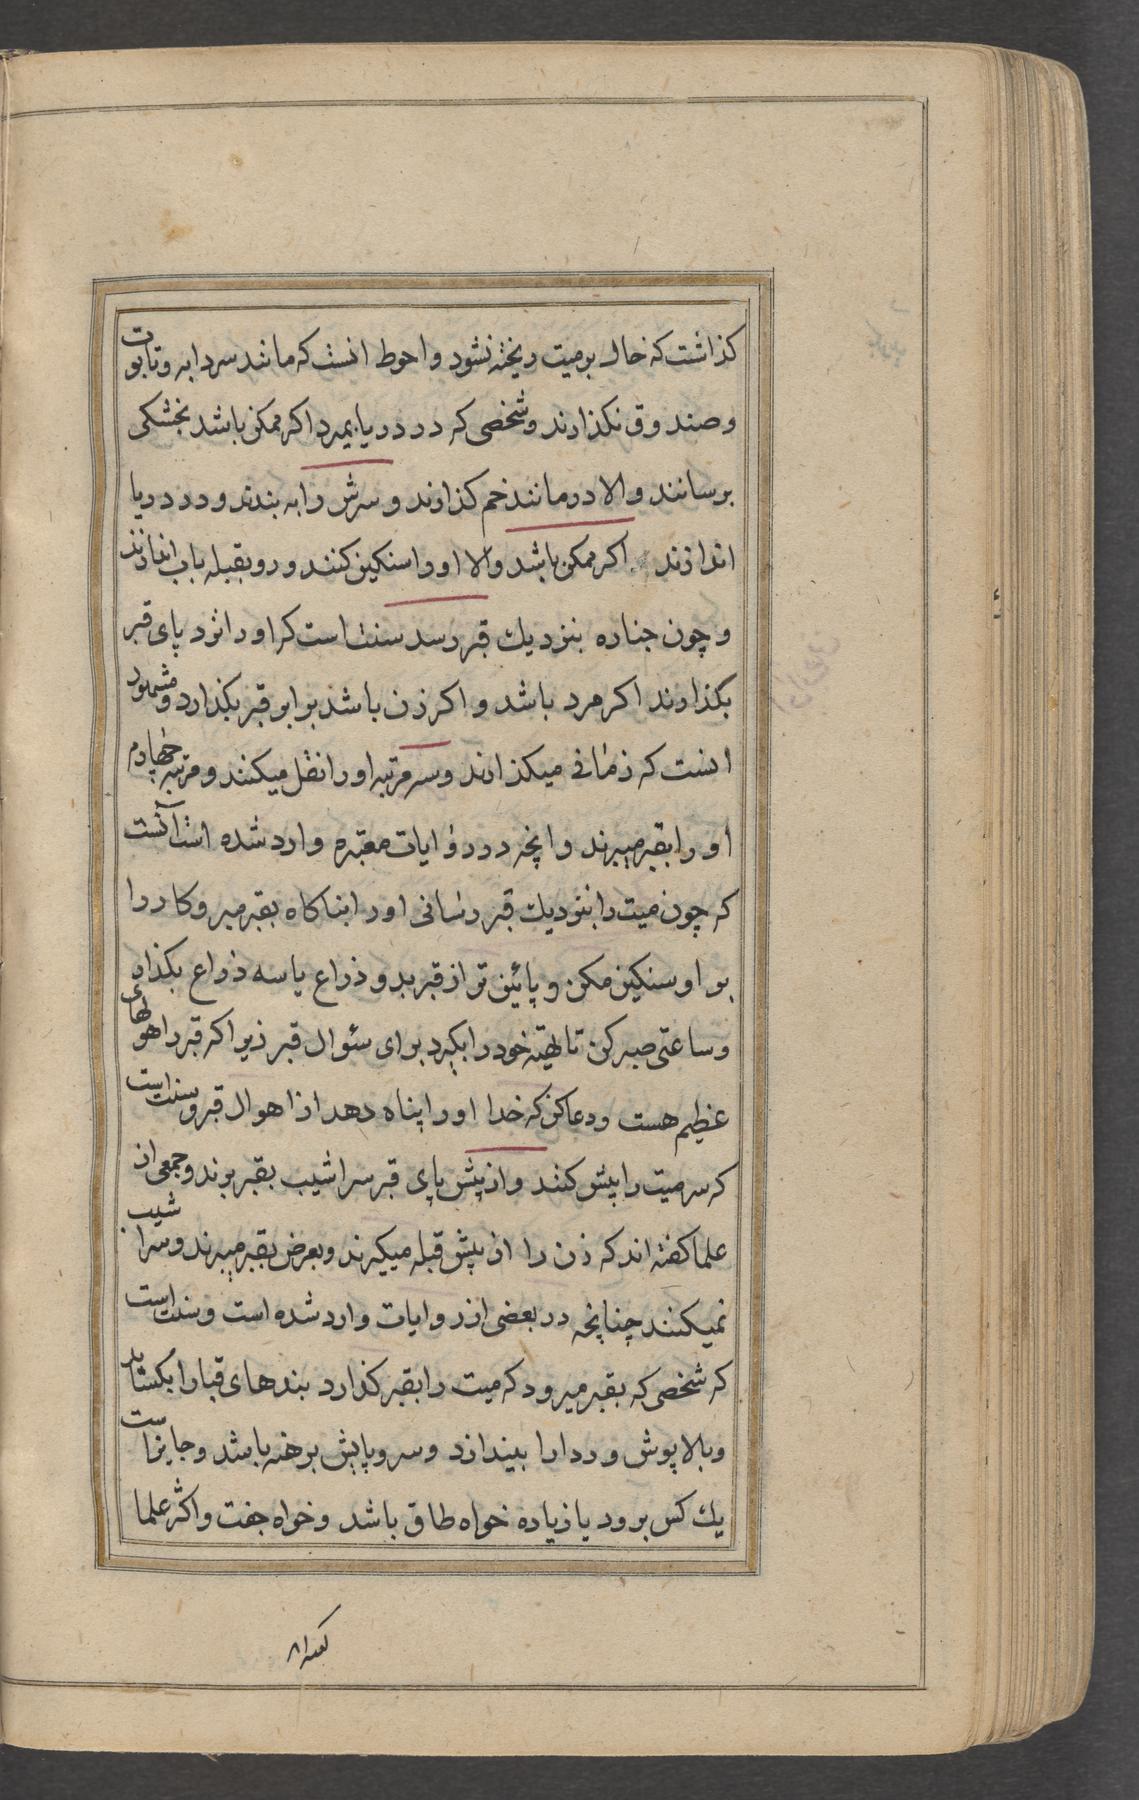 کذاشت که خاك بر میت ریخته نشود و احوط انست که مانند سردابه و تابوت
و صندوق نکذارند و شخصی که در دریا بمیرد اکر ممکن باشد بخشکی
برسانند والا در مانند خم کذارند و سرش را به بندند و در دریا
اندازند اکر ممکن باشد والا او را سنکین کنند و رو بقبله باب اندازند
و چون جنازه بنزدیك قبر رسد سنت است که او را نزد پای قبر
بکذارند اکر مرد باشد و اکر زن باشد برابر قبر بکذارد و مشهور
انست که زمانی میکذارند و سه مرتبه او را نقل میکنند و مرتبه چهارم
او را بقبر میبرند و انچه در روایات معتبره وارد شده است آنست
که چون میت را بنزدیك قبر رسانی او را بناکاه بقبر مبر و کار را
بر او سنکین مکن و پائین تر از قبر بدو ذراع یا سه ذراع بکذار
و ساعتی صبر کن تا تهیه خود را بکیرد برای سئوال قبر زیرا که قبر را هولهای
عظیم هست و دعا کن که خدا او را پناه دهد از اهوال قبر و سنت است
که سر میت را پیش کنند و از پیش پای قبر سراشیب بقبر برند و جمعی از
علما کفته اند که زن را از پیش قبله میکیرند و بعرض بقبر میبرند و سراشیب
نمیکنند چنانچه در بعضی از روایات وارد شده است و سنت است
که شخصی که بقبر میرود که میت را بقبر کذارد بندهای قبا را بکشاید
و بالاپوش و ردا را بیندازد و سر و پایش برهنه باشد و جایز است
یك کس برود یا زیاده خواه طاق باشد و خواه جفت و اکثر علما